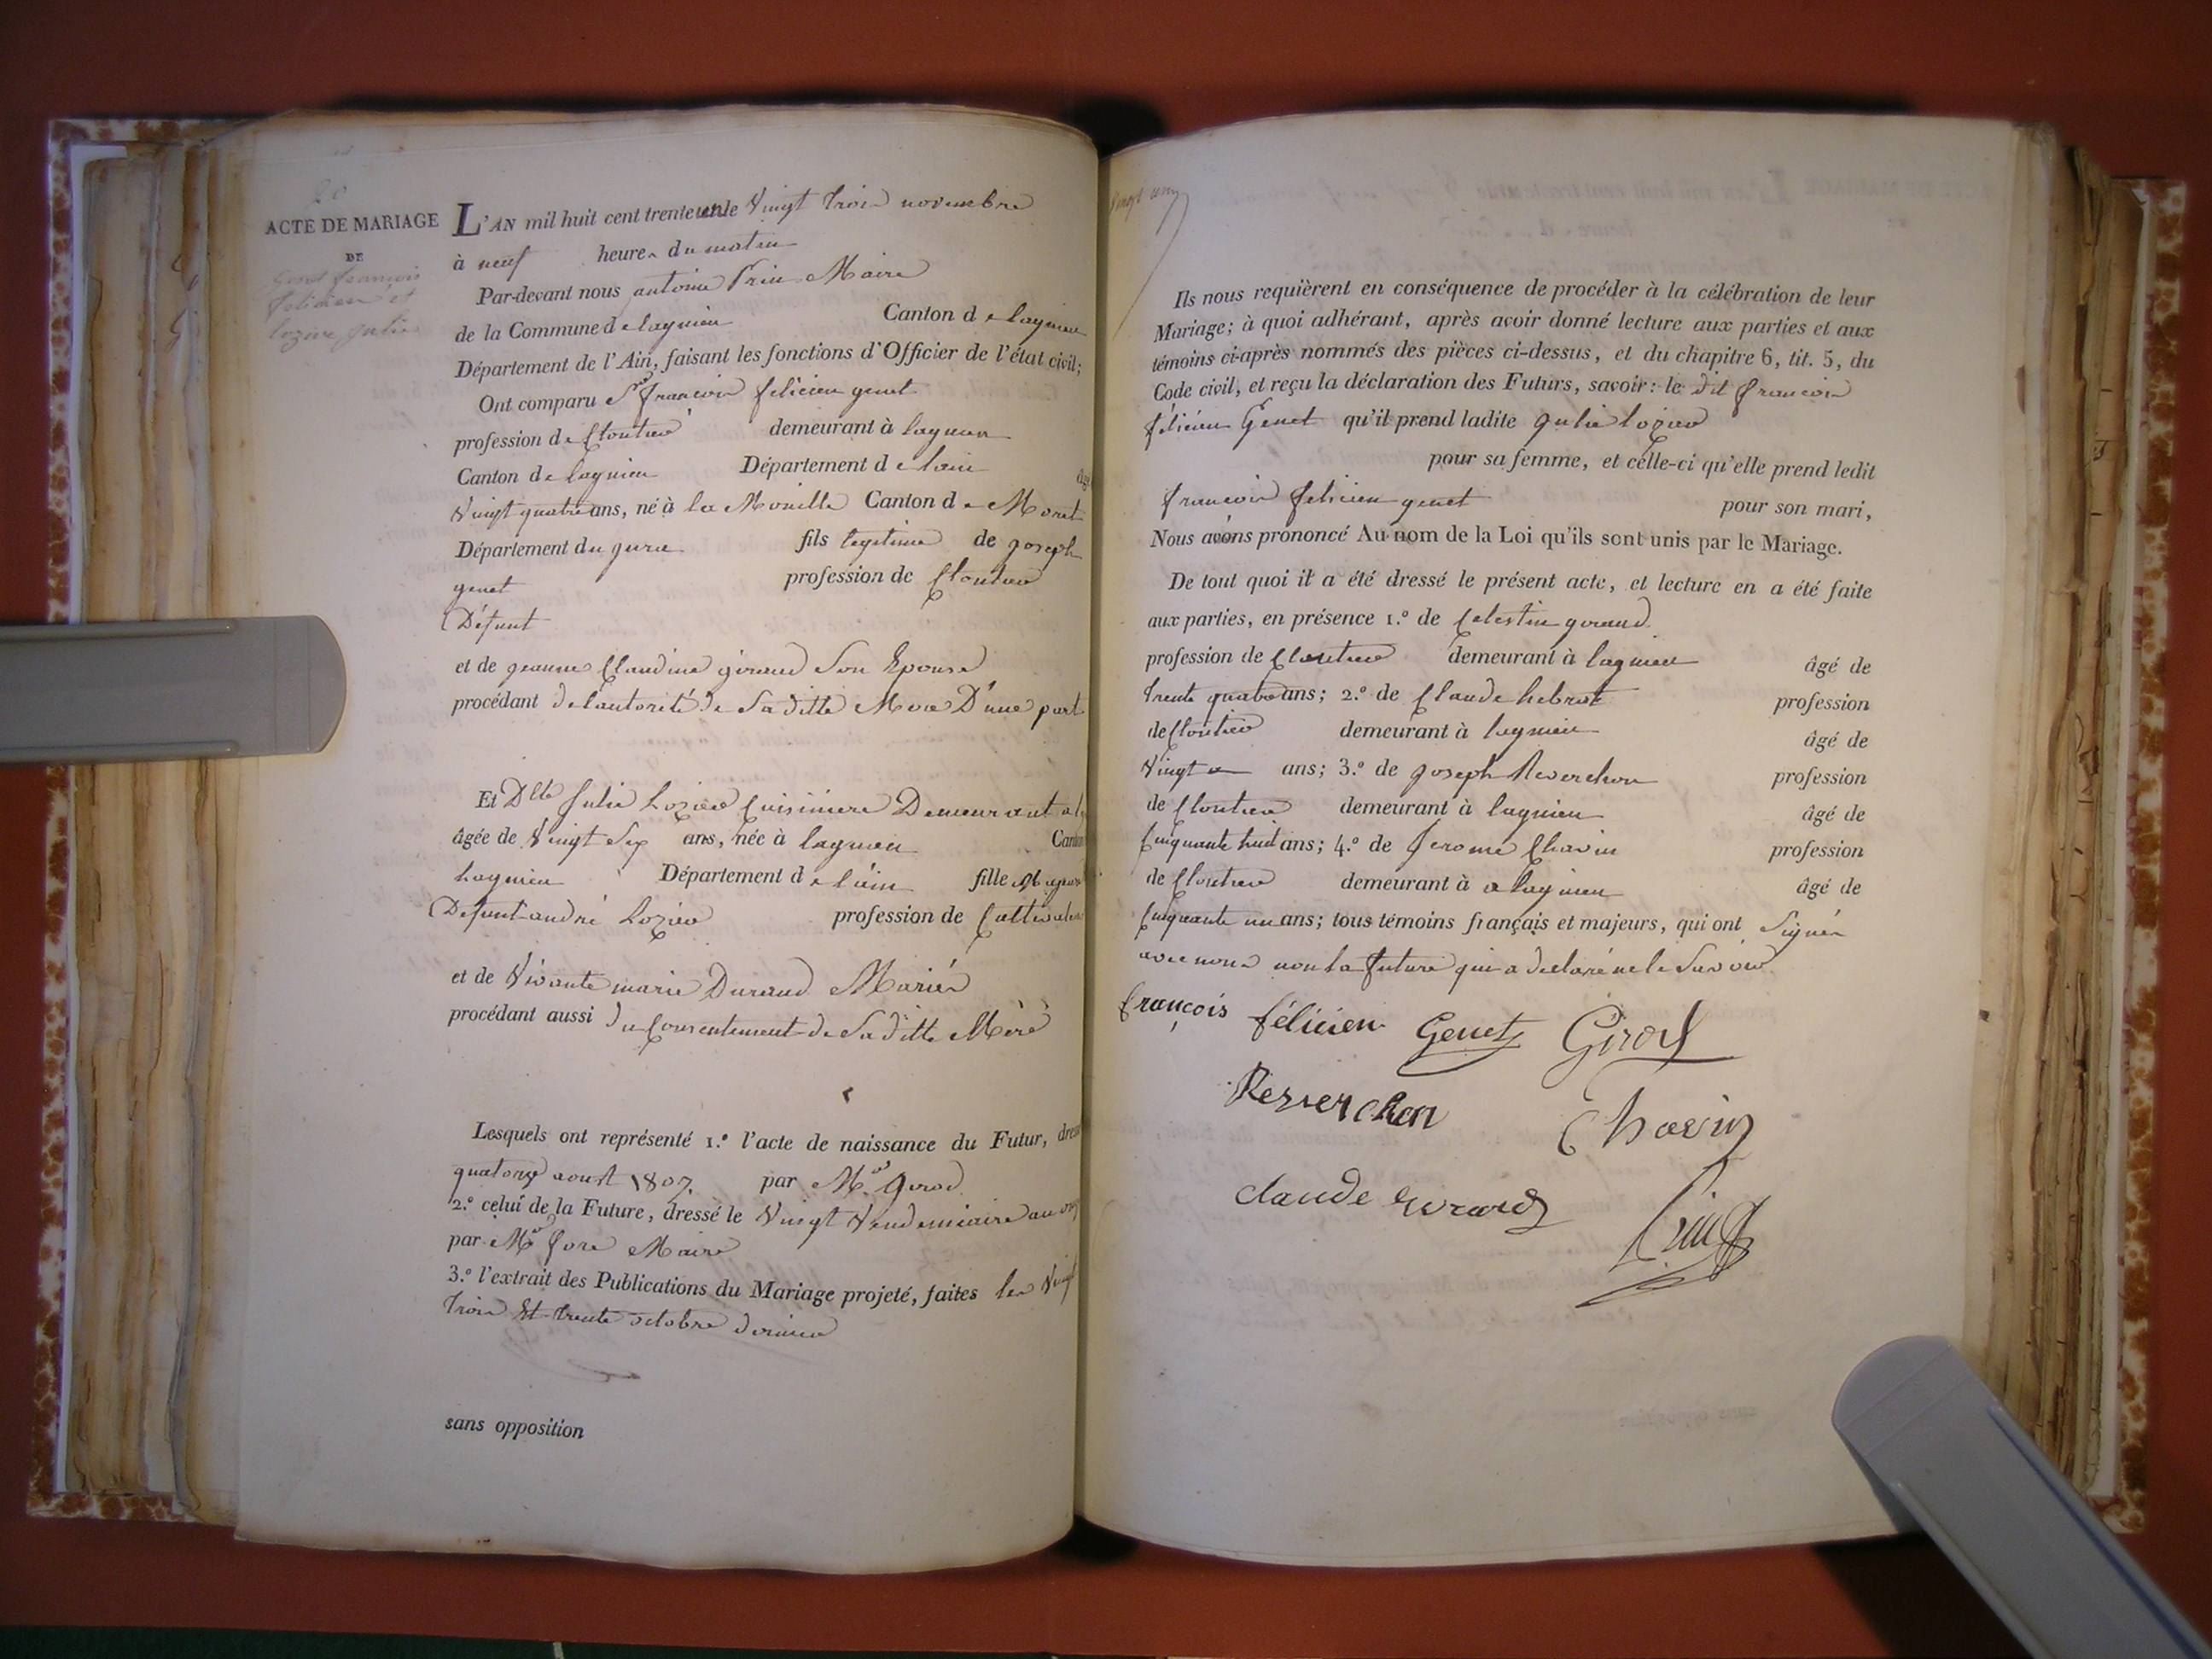 20
ACTE DE MARIAGE
DE
Genet françois
felicien et
lozier julie
L'AN mil huit cent trente un le Vingt trois novembre
à neuf heures du matin
Par-devant nous antoine Prin Maire
de la Commune de lagnieu Canton de lagnieu
Département de l'Ain, faisant les fonctions d'Officier de l'état civil;
Ont comparu Sr françois felicien genet
profession de Cloutier demeurant à lagnieu
Canton de lagnieu Département de lain âgé
Vingt quatre ans, né à la Mouille Canton de Moret
Département du jura fils legitime de joseph
genet profession de Cloutier
Défunt
et de jeanne Claudine giraud Son Epouse
procédant de l'autorité de Sa ditte Mere D'une part
Et Dlle Julie Lozier Cuisiniere Demeurant a
âgée de Vingt Six ans, née à lagnieu Canton
Lagnieu Département de l'ain fille Majeure
Defunt andré Lozier profession de Cultivateur
et de Vivante marie Durand Mariés
procédant aussi du Consentement de Sa ditte Mère
Lesquels ont représenté 1.º l'acte de naissance du Futur, dressé
quatorze aoust 1807. par Mr Girod
2.º celui de la Future, dressé le Vingt Vendemiaire an
par Mr Maire
3.º l'extrait des Publications du Mariage projeté, faites les Vingt
trois Et trente octobre dernier
sans opposition
Vingt un
Ils nous requièrent en conséquence de procéder à la célébration de leur
Mariage; à quoi adhérant, après avoir donné lecture aux parties et aux
témoins ci-après nommés des pièces ci-dessus, et du chapitre 6, tit. 5, du
Code civil, et reçu la déclaration des Futurs, savoir: le dit françois
félicien Genet qu'il prend ladite julie lozier
pour sa femme, et celle-ci qu'elle prend ledit
françois felicien genet pour son mari,
Nous avons prononcé Au nom de la Loi qu'ils sont unis par le Mariage.
De tout quoi il a été dressé le présent acte, et lecture en a été faite
aux parties, en présence 1.º de Celestin giraud
profession de Cloutier demeurant à lagnieu âgé de
trente quatre ans; 2.º de Claude profession
de Cloutier demeurant à lagnieu âgé de
Vingt ans; 3.º de joseph Reverchon profession
de Cloutier demeurant à lagnieu âgé de
Cinquante huit ans; 4.º de Jerome Chavin profession
de Cloutier demeurant à a lagnieu âgé de
Cinquante un ans; tous témoins français et majeurs, qui ont Signés
avec nous non la future qui a declaré ne le Savoir.
françois félicien Genet Girod
Reverchon Chavin
Claude
Prin